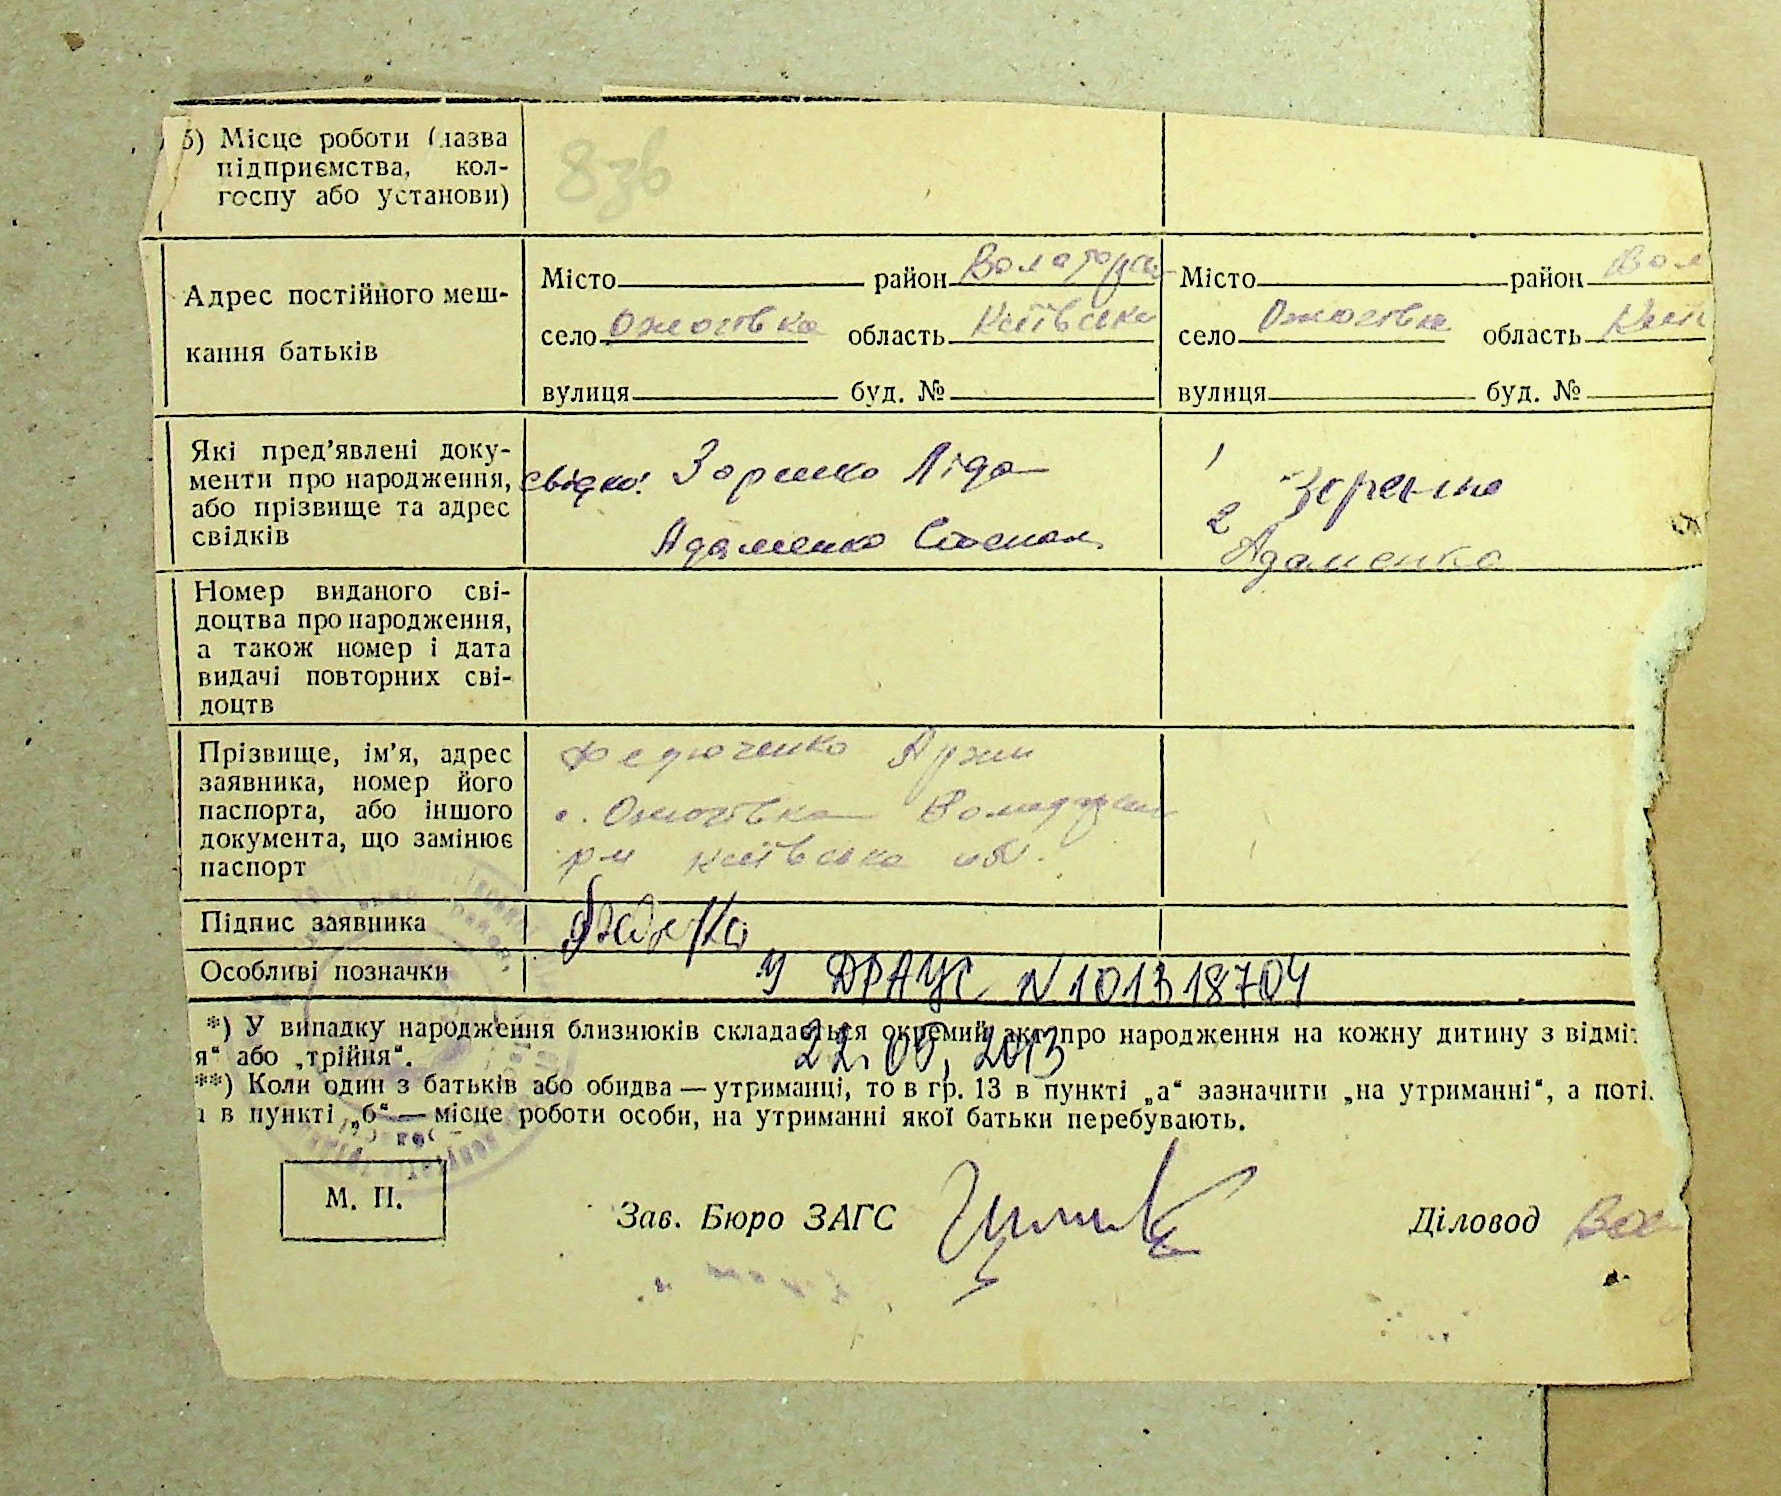 б) Місце роботи (назва
підприємства, кол-
госпу або установи)
Адрес постійного меш-
кання батьків
Місто район
село Ожогівка область Київська
вулиця буд. №
Місто район Вол
село Ожогівка область Киї
вулиця буд. №
Які пред’явлені доку-
менти про народження,
або прізвище та адрес
свідків
свідки: Зоренко Ліда
Адаменко Степан
1 Зоренко
2 Адаменко
Номер виданого сві-
доцтва про народження,
а також номер і дата
видачі повторних сві-
доцтв
Прізвище, ім’я, адрес
заявника, номер його
паспорта, або іншого
документа, що замінює
паспорт
Федюченко
с. Ожогівка
р-н Київська обл.
Підпис заявника
Особливі позначки
У ДРАЦС N 101318704
2013
*) У випадку народження близнюків складається окремий акт про народження на кожну дитину з відміт
я“ або „трійня“.
**) Коли один з батьків або обидва — утриманці, то в гр. 13 в пункті „а“ зазначити „на утриманні“, а поті
в пункті „б“ — місце роботи особи, на утриманні якої батьки перебувають.
М. П.
Зав. Бюро ЗАГС
Діловод